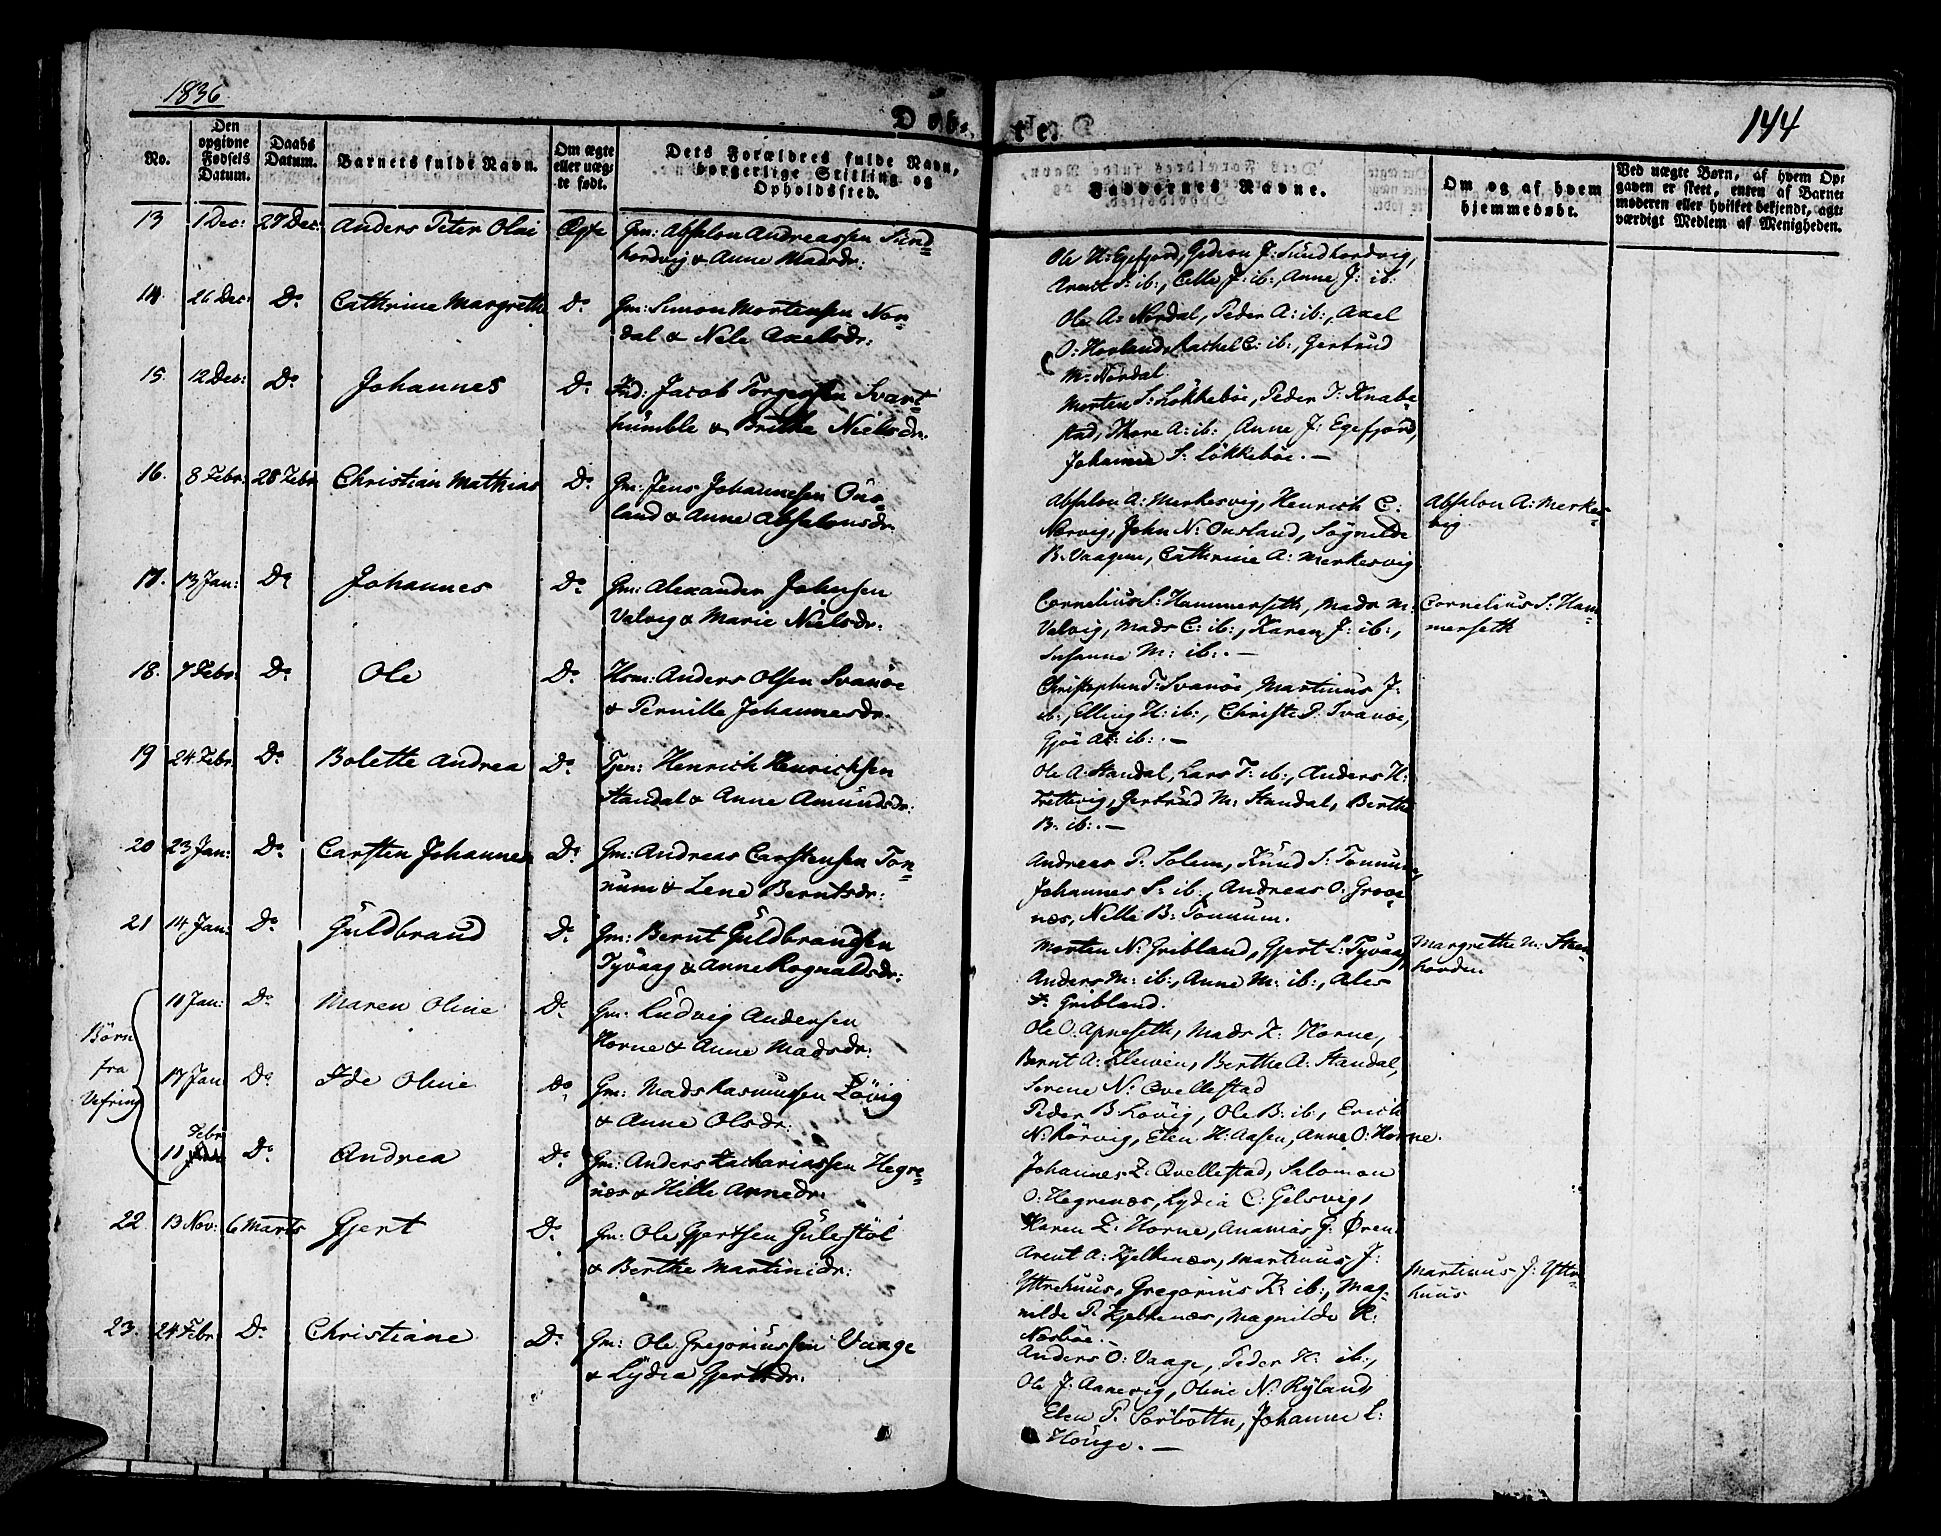 1836
144
Døbte.
No.
Den opgivne Fødsels Datum.
Daabs Datum.
Barnets fulde Navn.
Om ægte eller uægte født.
Dets Forældres fulde Navn, borgerlige Stilling og Opholdssted.
Faddernes Navne.
Om og af hvem hjemmedøbt.
Ved uægte Børn, af hvem Opgaven er skeet, enten af Barnemoderen eller hvilket bekjendt, agtværdigt Medlem af Menigheden.
13 1 Dec: 27 Dec: Anders Peter Olai Ægte Gm: Absalon Andreassen Sünd=
hordvig & Anne Madsdr:
Ole H: Egefjord, Gedion J: Sündhordvig,
Arent S: ib:, Celle J: ib:, Anne J: ib:
14 26 Dec: Do Cathrine Margrethe Do Gm: Simon Mortensen Nor=
dal & Nele Axelsdr:
Ole A: Nordal, Peder A: ib:, Axel
O: Horland, Rachel C: ib:, Gertrud
M: Nordal.
15. 12 Dec: Do Johannes Do Jacob Torgersen Svart=
humble & Brithe Nielsdr.
Morten S: Løkkebøe, Peder J: Knabe=
stad, Thore A: ib:, Anne J: Egefjord,
Johanne S: Løkkebøe. —
16. 8 Febr: 28 Febr Christian Mathias Do Gm: Jens Johannesen Ous=
land & Anne Absalonsdr.
Absalon A: Merkesvig, Henrich C:
Nervig, John N: Ousland, Søgnilde
B: Vaagene, Cathrine A: Merkesvig
Absalon A: Merkes=
vig.
17. 13 Jan: Do Johannes Do Gm: Alexander Johnsen
Valvig & Marie Nielsdr:
Cornelius S: Hammerseth, Mads M:
Valvig, Mads C: ib:, Karen J: ib:,
Susanne M: ib:. —
Cornelius S: Ham=
merseth
18. 7 Febr: Do Ole Do Hsm: Anders Olsen Svanöe
& Pernille Johannesdr.
Christopher T: Svanöe, Martinus J:
ib:, Elling H: ib:, Christi P: Svanöe,
Gjöe A: ib:. —
19 24 Febr: Do Bolette Andrea Do Tjen: Henrich Henrichsen
Standal & Anne Amundsdr:
Ole A: Standal, Lars T: ib:, Anders H:
Trettevig, Gertrüd M: Standal, Berthe
B: ib:. —
20 23 Jan: Do Carsten Johannes Do Gm: Andreas Carstensen Ton=
num & Lene Berntsdr:
Andreas P: Solem, Knüd S: Tonnum,
Johannes S: ib:, Andreas O: Grove=
næs, Nelle B: Tonnum.
21 14 Jan: Do Güldbrand Do Gm: Bernt Güldbrandsen
Tyvaag & Anne Rognaldsdr:
Morten N: Gribland, Gjert L: Tyvaag,
Anders M: ib:, Anne M: ib:, Ales
F: Gribland.
Margrethe M: Staa=
horden
Børn
fra
Vefring
10 Jan: Do Maren Oline Do Gm: Ludvig Andersen
Horne & Anne Madsdr:
Ole O: Apneseth, Mads Z: Horne,
Bernt A: Kleiven, Berthe A: Standal,
Serene N: Qvellestad
17 Jan Do Ide Oline Do Gm: Mads Rasmussen Lövig
& Anne Olsdr:
Peder B: Lövig, Ole B: ib:, Erich
N: Rörvig, Elen H: Aasen, Anne O: Horne.
Febr
10 Do Andrea Do Gm: Anders Zachariassen Hegre=
næs & Hille Arnedr:
Johannes Z: Qvellestad, Salomon
O: Hegrenæs, Lydia C: Gjelsvig,
Karen Z: Horne, Ananias G: Øren
22. 13 Nov: 6 Marts Gjert Do Gm: Ole Gjertsen Gülestöl
& Berthe Martinidr:
Arent A: Kjelkenæs, Martinus J:
Yttrehuus, Gregorius K: ib:, Mag=
nilde P: Kjelkenæs, Magnilde R:
Næsböe. —
Martinus J: Yttre=
huus
23. 24 Febr Do Christiane Do Gm: Ole Gregoriussen Vaage
& Lydia Gjertsdr:
Anders O: Vaage, Peder H: ib:,
Ole J: Annevig, Oline N: Ryland,
Elen P. Sörbotten, Johanne L:
Houge. —